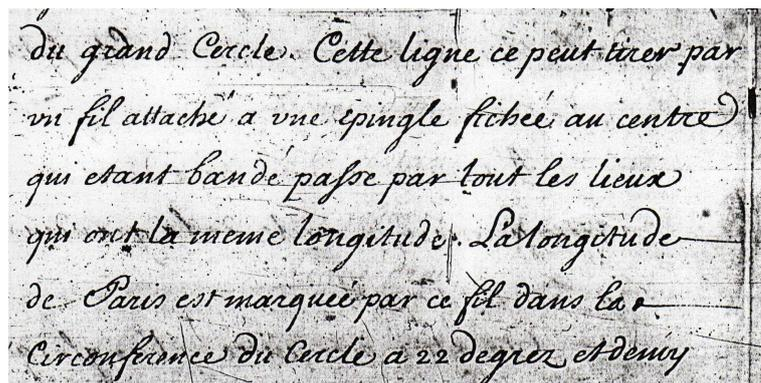 du grand Cercle. Cette ligne ce peut tirer par
vn fil attaché a vne épingle fichée au centre
qui etant bandé passe par tout les lieux
qui ont la meme longitude. La longitude
de Paris est marquée par ce fil dans la
Circonference du Cercle a 22 degrez et demy